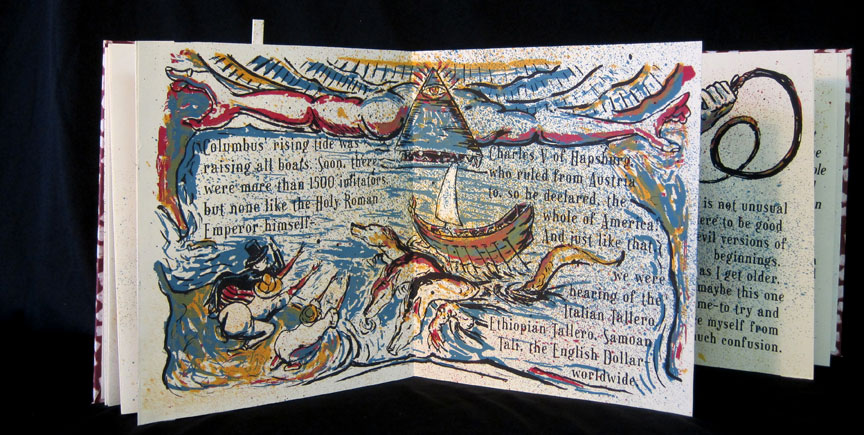 Columbus' rising tide was
raising all boats. Soon, there
were more than 1500 imitators,
but none like the Holy Roman
Emperor himself.
Charles V of Hapsburg
who ruled from Austria
to, so he declared, the
whole of America!
And just like that,
we were
hearing of the
Italian Tallero,
Ethiopian Tallero, Samoan
Tali, the English Dollar
worldwide.
is not unusual
ere to be good
evil versions of
beginnings.
as I get older,
maybe this one
me-to try and
e myself from
uch confusion.